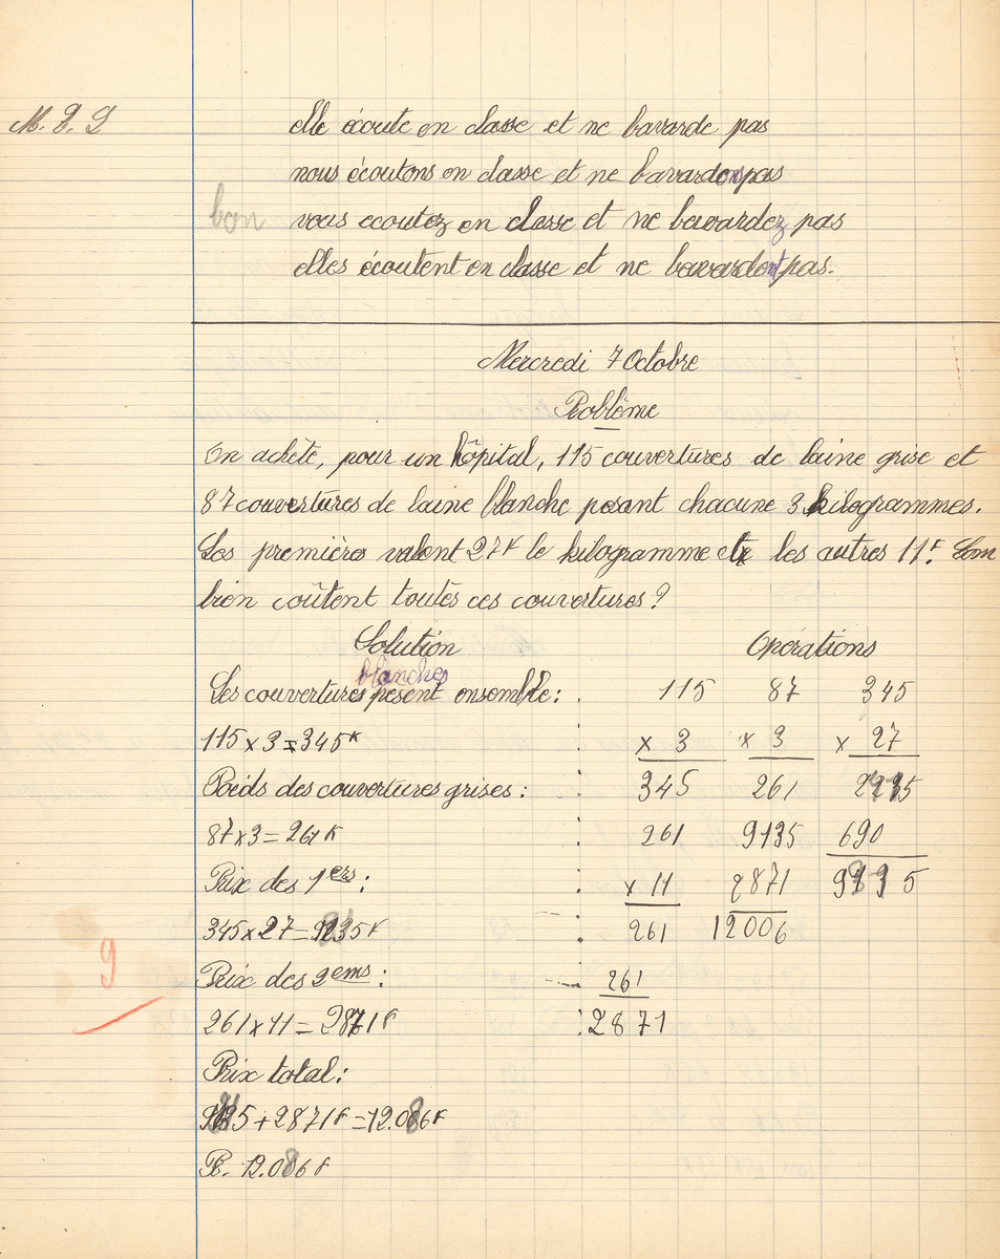 M. 2. 2
elle écoute en classe et ne bavarde pas
nous écoutons en classe et ne bavardons pas
bon vous ecoutez en classe et ne bavardez pas
elles écoutent en classe et ne bavardent pas.
Mercredi 7 Octobre
Problème
On achète, pour un hôpital, 115 couvertures de laine grise et
87 couvertures de laine blanche pesant chacune 3 kilogrammes.
Les premières valent 27F le kilogramme et les autres 11F. Com
bien coûtent toutes ces couvertures ?
Solution Opérations
blanches
Les couvertures pesent ensemble : 115 87 345
115 x 3 = 345K x 3 x 3 x 27
Poids des couvertures grises : 345 261
87 x 3 = 261K 261 9135 690
Prix des 1ers : x 11 2871
345 x 27 = F 261 12006
9
Prix des 2ems : 261
261 x 11 = 2871F 2871
Prix total :
+ 2871F = 12.086F
R. 12.086F